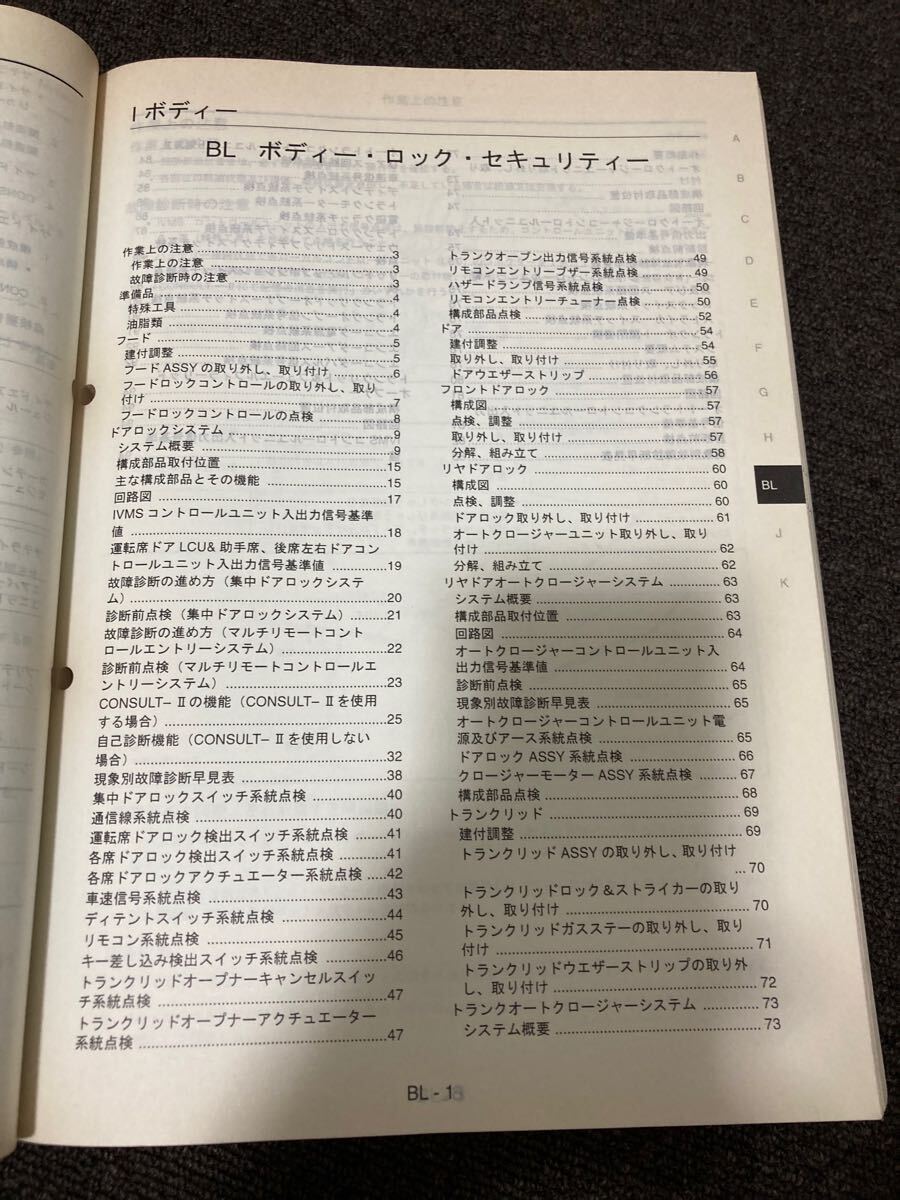 I ボディー
BL ボディー・ロック・セキュリティー
作業上の注意 ... 3
作業上の注意 ... 3
故障診断時の注意 ... 3
準備品 ... 4
特殊工具 ... 4
油脂類 ... 4
フード ... 5
建付調整 ... 5
フード ASSY の取り外し、取り付け ... 6
フードロックコントロールの取り外し、取り
付け ... 7
フードロックコントロールの点検 ... 8
ドアロックシステム ... 9
システム概要 ... 9
構成部品取付位置 ... 15
主な構成部品とその機能 ... 15
回路図 ... 17
IVMS コントロールユニット入出力信号基準
値 ... 18
運転席ドア LCU& 助手席、後席左右ドアコン
トロールユニット入出力信号基準値 ... 19
故障診断の進め方（集中ドアロックシステ
ム） ... 20
診断前点検（集中ドアロックシステム） ... 21
故障診断の進め方（マルチリモートコント
ロールエントリーシステム） ... 22
診断前点検（マルチリモートコントロールエ
ントリーシステム） ... 23
CONSULT– II の機能（CONSULT– II を使用
する場合） ... 25
自己診断機能（CONSULT– II を使用しない
場合） ... 32
現象別故障診断早見表 ... 38
集中ドアロックスイッチ系統点検 ... 40
通信線系統点検 ... 40
運転席ドアロック検出スイッチ系統点検 ... 41
各席ドアロック検出スイッチ系統点検 ... 41
各席ドアロックアクチュエーター系統点検 ... 42
車速信号系統点検 ... 43
ディテントスイッチ系統点検 ... 44
リモコン系統点検 ... 45
キー差し込み検出スイッチ系統点検 ... 46
トランクリッドオープナーキャンセルスイッ
チ系統点検 ... 47
トランクリッドオープナーアクチュエーター
系統点検 ... 47
トランクオープン出力信号系統点検 ... 49
リモコンエントリーブザー系統点検 ... 49
ハザードランプ信号系統点検 ... 50
リモコンエントリーチューナー点検 ... 50
構成部品点検 ... 52
ドア ... 54
建付調整 ... 54
取り外し、取り付け ... 55
ドアウエザーストリップ ... 56
フロントドアロック ... 57
構成図 ... 57
点検、調整 ... 57
取り外し、取り付け ... 57
分解、組み立て ... 58
リヤドアロック ... 60
構成図 ... 60
点検、調整 ... 60
ドアロック取り外し、取り付け ... 61
オートクロージャーユニット取り外し、取り
付け ... 62
分解、組み立て ... 62
リヤドアオートクロージャーシステム ... 63
システム概要 ... 63
構成部品取付位置 ... 63
回路図 ... 64
オートクロージャーコントロールユニット入
出力信号基準値 ... 64
診断前点検 ... 65
現象別故障診断早見表 ... 65
オートクロージャーコントロールユニット電
源及びアース系統点検 ... 65
ドアロック ASSY 系統点検 ... 66
クロージャーモーター ASSY 系統点検 ... 67
構成部品点検 ... 68
トランクリッド ... 69
建付調整 ... 69
トランクリッド ASSY の取り外し、取り付け
... 70
トランクリッドロック & ストライカーの取り
外し、取り付け ... 70
トランクリッドガスステーの取り外し、取り
付け ... 71
トランクリッドウエザーストリップの取り外
し、取り付け ... 72
トランクオートクロージャーシステム ... 73
システム概要 ... 73
A
B
C
D
E
F
G
H
BL
J
K
BL - 1